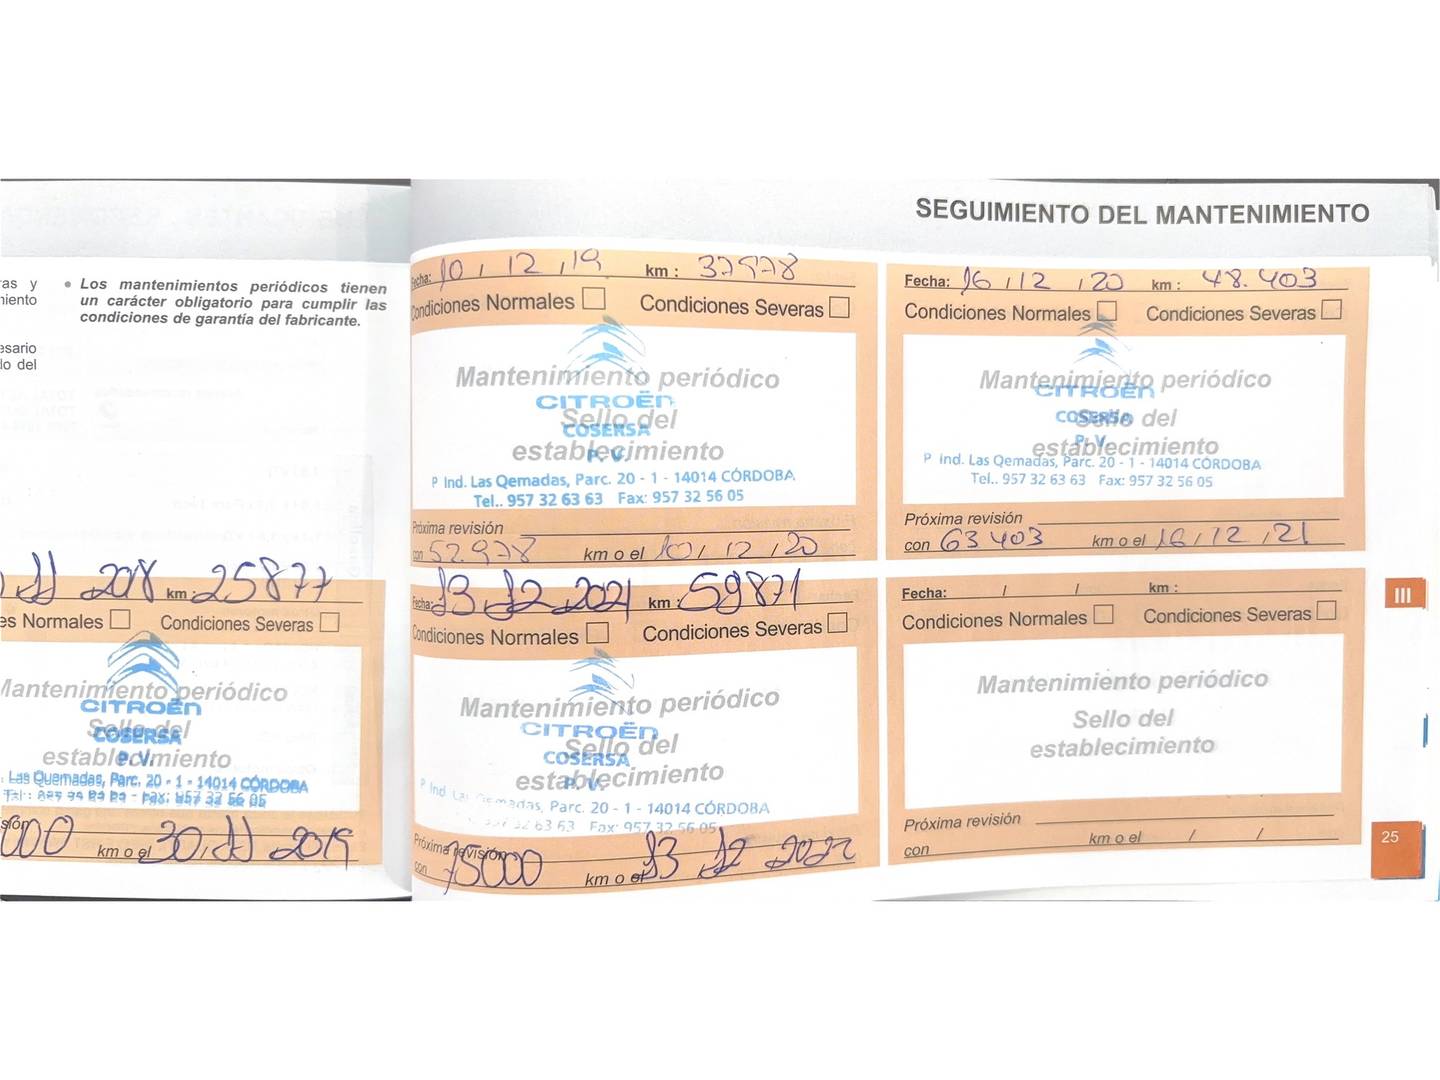 SEGUIMIENTO DEL MANTENIMIENTO
as y
iento
esario
lo del
• Los mantenimientos periódicos tienen
un carácter obligatorio para cumplir las
condiciones de garantía del fabricante.
11 2018 km : 25877
es Normales Condiciones Severas
Mantenimiento periódico
CITROËN
Sello del
COSERSA
establecimiento
P.V.
. Las Quemadas, Parc. 20 - 1 - 14014 CÓRDOBA
sión
000 km o el 30 / 11 2019
Fecha: 10 / 12 / 19 km : 37978
Condiciones Normales Condiciones Severas
Mantenimiento periódico
CITROËN
Sello del
COSERSA
establecimiento
P.V.
P Ind. Las Qemadas, Parc. 20 - 1 - 14014 CÓRDOBA
Tel.. 957 32 63 63 Fax: 957 32 56 05
Próxima revisión
con 52.978 km o el 10 / 12 / 20
Fecha: 16 / 12 / 20 km : 48.403
Condiciones Normales Condiciones Severas
Mantenimiento periódico
CITROËN
Sello del
COSERSA
establecimiento
P.V.
P Ind. Las Qemadas, Parc. 20 - 1 - 14014 CÓRDOBA
Tel.. 957 32 63 63 Fax: 957 32 56 05
Próxima revisión
con 63403 km o el 16 / 12 / 21
Fecha: 13 12 2021 km : 59871
Condiciones Normales Condiciones Severas
Mantenimiento periódico
CITROËN
Sello del
COSERSA
establecimiento
P.V.
P Ind. Las Qemadas, Parc. 20 - 1 - 14014 CÓRDOBA
957 32 63 63 Fax: 957 32 56 05
Próxima revisión
con 75000 km o el 13 12 2022
Fecha: / / km :
Condiciones Normales Condiciones Severas
Mantenimiento periódico
Sello del
establecimiento
Próxima revisión
con km o el / /
III
25